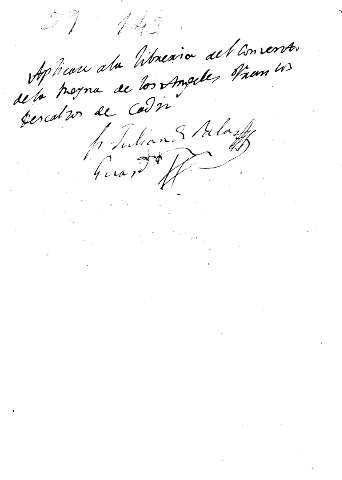 59 142
Aplicase a la libreria del convento
de la Reyna de los Angeles
Descalzos de Cadiz
fr. Julian de
Guard.n